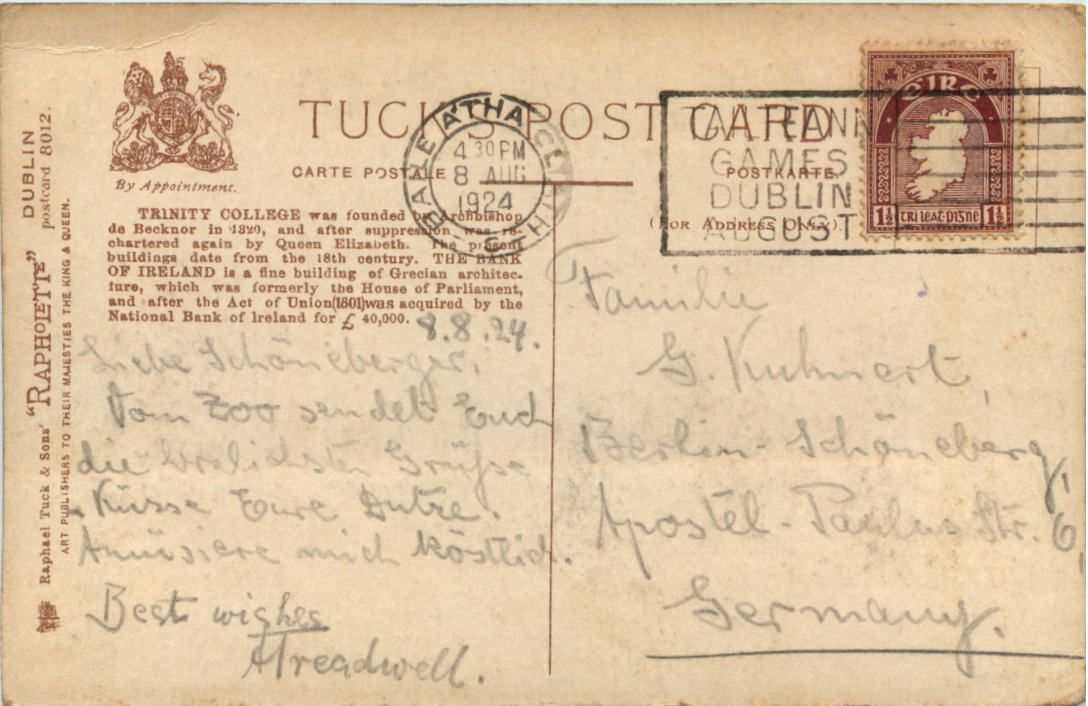 DUBLIN
postcard 8012.
Raphael Tuck & Sons' "RAPHOLETTE"
ART PUBLISHERS TO THEIR MAJESTIES THE KING & QUEEN.
By Appointment.
TUCK'S POST CARD
CARTE POSTALE
POSTKARTE.
(For Address Only)
TRINITY COLLEGE was founded by Archbishop
de Becknor in 1320, and after suppression was re-
chartered again by Queen Elizabeth. The present
buildings date from the 18th century. THE BANK
OF IRELAND is a fine building of Grecian architec-
ture, which was formerly the House of Parliament,
and after the Act of Union(1801)was acquired by the
National Bank of Ireland for £ 40,000.
BAILE ÁTHA CLIATH
4 30 PM
8 AUG
1924
TAILTEANN
GAMES
DUBLIN
AUGUST
éire
1½ trí leat-pinne 1½
8.8.24.
Liebe Schöneberger,
Vom Zoo sendet Euch
die herzlichsten Grüsse
Küsse Eure
Amüsiere mich köstlich.
Best wishes
ATreadwell.
Familie
G. Kuhnert,
Berlin-Schöneberg,
Apostel-Paulus Str. 6,
Germany.